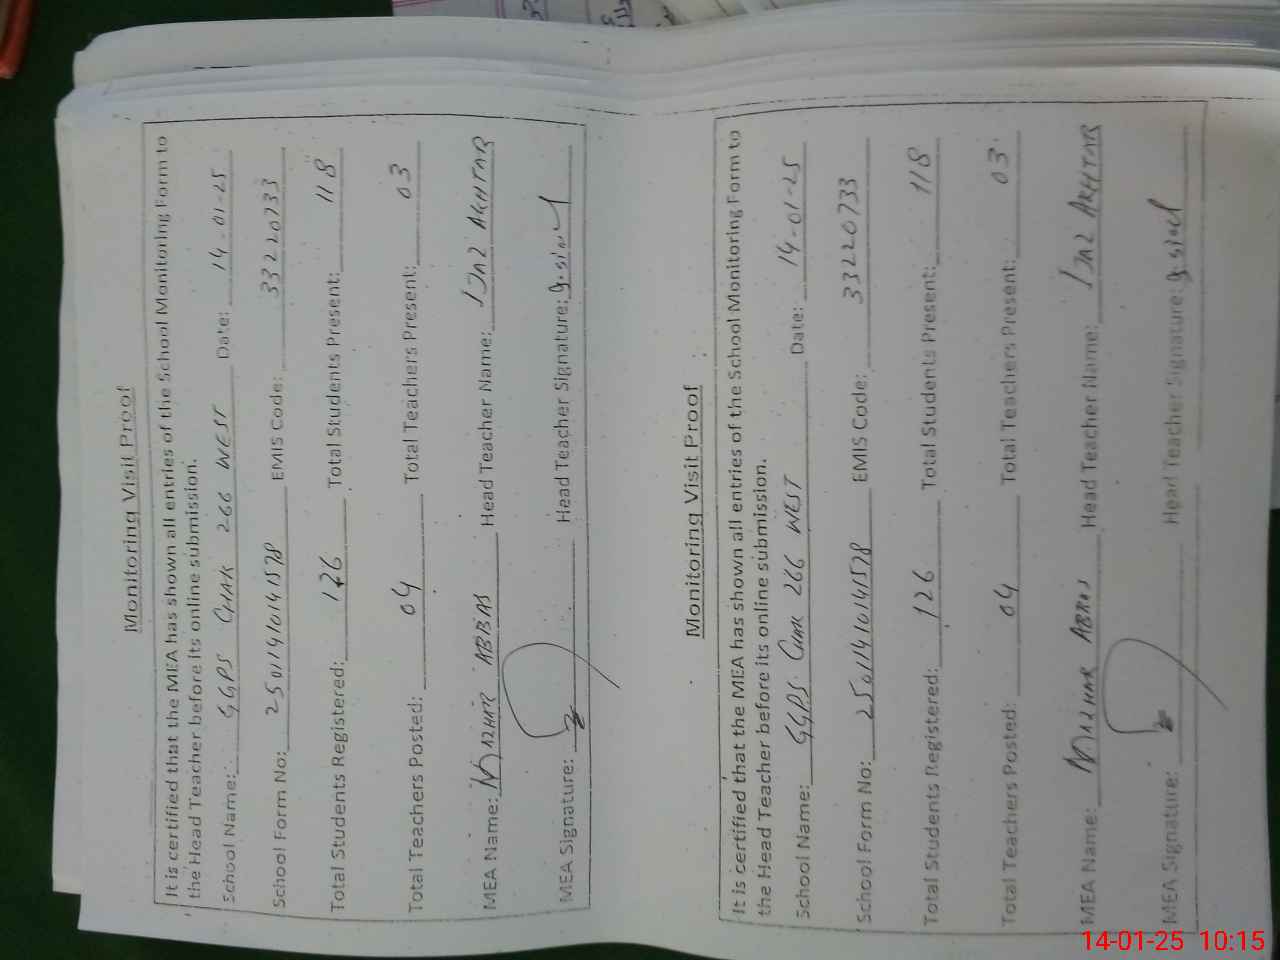 Monitoring Visit Proof
It is certified that the MEA has shown all entries of the School Monitoring Form to
the Head Teacher before its online submission.
School Name: GGPS CHAK 266 WEST Date: 14-01-25
School Form No: 25011410141578 EMIS Code: 33220733
Total Students Registered: 126 Total Students Present: 118
Total Teachers Posted: 04 Total Teachers Present: 03
MEA Name: MAZHAR ABBAS Head Teacher Name: IJAZ AKHTAR
MEA Signature: Head Teacher Signature:
Monitoring Visit Proof
It is certified that the MEA has shown all entries of the School Monitoring Form to
the Head Teacher before its online submission.
School Name: GGPS CHAK 266 WEST Date: 14-01-25
School Form No: 25011410141578 EMIS Code: 33220733
Total Students Registered: 126 Total Students Present: 118
Total Teachers Posted: 04 Total Teachers Present: 03
MEA Name: MAZHAR ABBAS Head Teacher Name: IJAZ AKHTAR
MEA Signature: Head Teacher Signature:
14-01-25 10:15